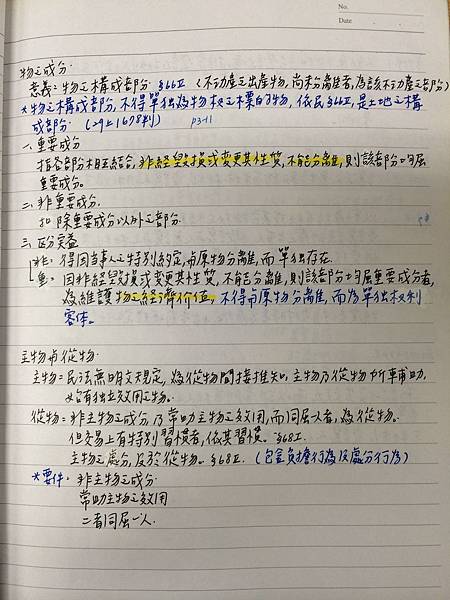 No.
Date
物之成分.
意義=物之構成部分. §66Ⅱ (不動產之出產物,尚未分離者,為該不動產之部分)
*物之構成部分,不得單獨為物權之標的物,依民§66Ⅱ,是土地之構
成部分. (29上1678判) P3-11
一.重要成分
指各部分相互結合,非經毀損或變更其性質,不能分離,則該部分均屬
重要成分。
二.非重要成分.
扣除重要成分以外之部分.
三.區分實益
非: 得因當人之特別約定,與原物分離,而單獨存在.
重: 因非經毀損或變更其性質,不能分離,則該部分均屬重要成分者,
為維護物之經濟價值,不得與原物分離,而為單獨權利
客体。
主物與從物.
主物=民法無明文規定,為從物間接推知,主物乃從物所輔助,
独立效用之物。
從物=非主物之成分,乃常助主物之效用,而同屬一人者,為從物。
但交易上有特別習慣者,依其習慣。§68Ⅰ.
主物之處分,及於從物。§68Ⅱ. (包含負擔行為及處分行為)
*要件: 非主物之成分.
常助主物之效用
二者同屬一人.